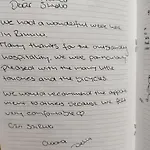 Dear Sirado
We had a wonderful week here
in Rimini.
Many thanks for the outstanding
hospitality. We were particularly
pleased with the many little
touches and the bicycles.
We would recommend the appart-
ment to others because we felt
very comfortable